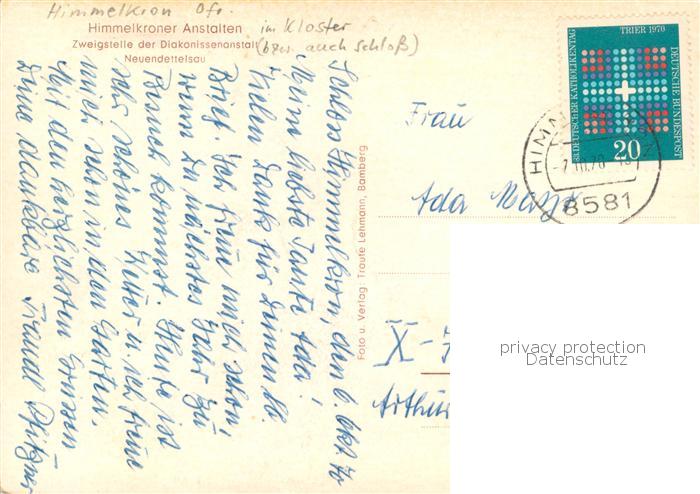 Himmelkron Ofr.
Himmelkroner Anstalten
Zweigstelle der Diakonissenanstalt
Neuendettelsau
im Kloster
(bzw. auch Schloß)
Schloss Himmelkron, den 6. Okt. 70
Meine liebste Tante Ada!
Vielen Dank für Deinen lb.
Brief. Ich freue mich schon,
wenn Du nächstes Jahr zu
Besuch kommst. Heute ist
sehr schönes Wetter u. ich freue
mich schon in den Garten.
Mit den herzlichsten Grüssen
Deine dankbare Traudl
Foto u. Verlag Traute Lehmann, Bamberg
83. DEUTSCHER KATHOLIKENTAG
TRIER 1970
DEUTSCHE BUNDESPOST
20
HIMM
-7.10.70
8581
Frau
Ada
X-7
Arthur
privacy protection
Datenschutz